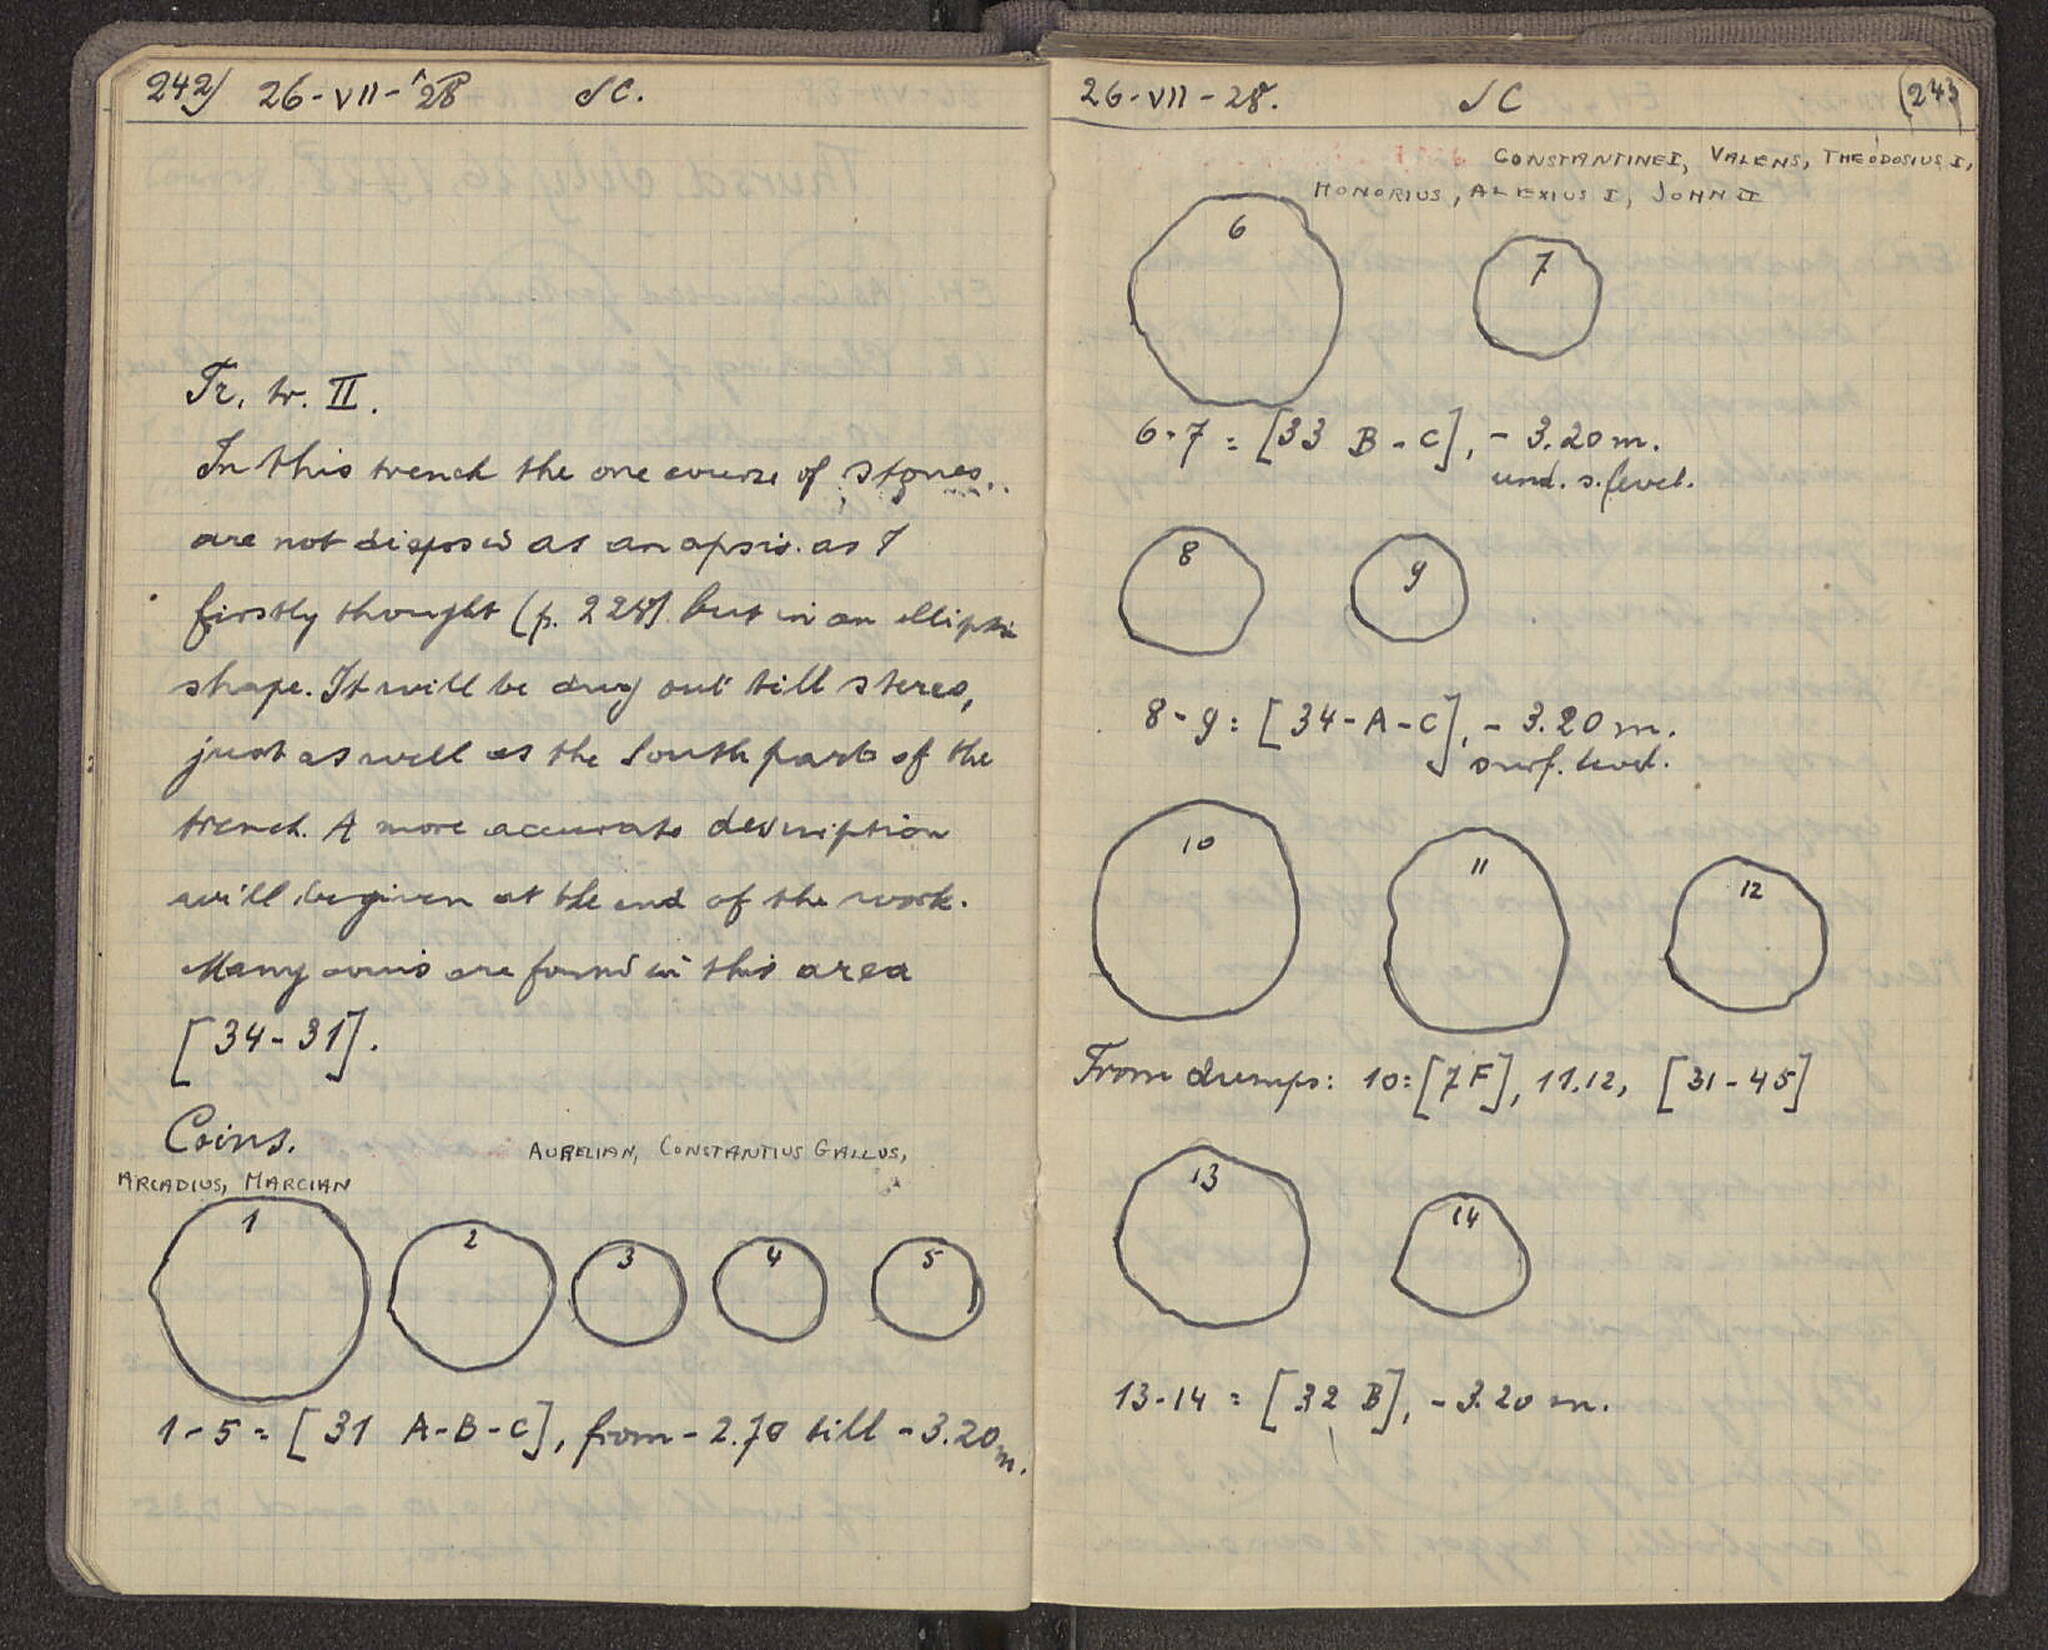 242) 26-VII-'28 SC.
Tr. tr. II.
In this trench the one course of stones
are not disposed as an apsis as I
firstly thought (p. 228) but in an elliptic
shape. It will be dug out till stereo,
just as well as the South part of the
trench. A more accurate description
will be given at the end of the work.
Many coins are found in this area
[34-31].
Coins. AURELIAN, CONSTANTIUS GALLUS,
ARCADIUS, MARCIAN
1 2 3 4 5
1-5 = [31 A-B-C], from -2.70 till -3.20 m.
26-VII-28. SC (243
CONSTANTINE I, VALENS, THEODOSIUS I,
HONORIUS, ALEXIUS I, JOHN II
6 7
6-7 = [33 B-C], -3.20 m.
und. s. level.
8 9
8-9 = [34-A-C], -3.20 m.
surf. level.
10 11 12
From dumps: 10=[7F], 11.12, [31-45]
13 14
13-14 = [32 B], -3.20 m.